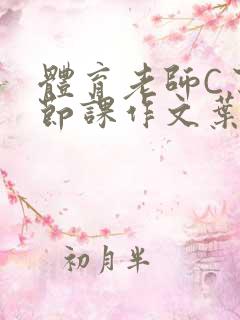 體育老師C
節課作文葉
初月半